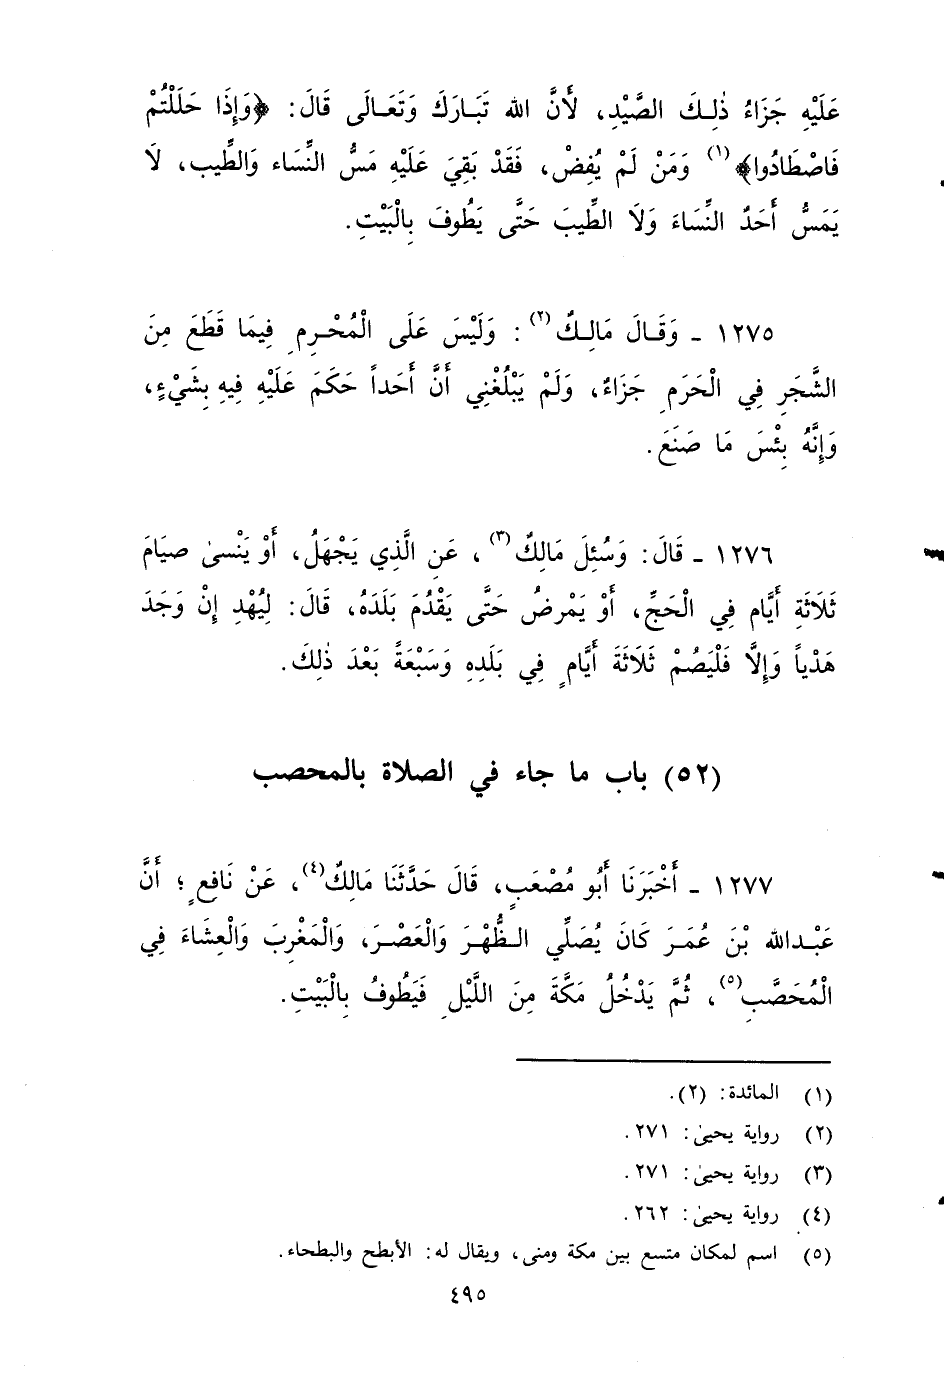 عَلَيْهِ جَزَاءُ ذٰلِكَ الصَّيْدِ، لأَنَّ الله تَبَارَكَ وَتَعَالَى قَالَ: ﴿وَإِذَا حَلَلْتُمْ
فَاصْطَادُوا﴾(١) وَمَنْ لَمْ يُفِضْ، فَقَدْ بَقِيَ عَلَيْهِ مَسُّ النِّسَاء وَالطِّيب، لَا
يَمَسُّ أَحَدٌ النِّسَاءَ وَلَا الطِّيبَ حَتَّى يَطُوفَ بِالْبَيْتِ.
١٢٧٥ ـ وَقَالَ مَالِكٌ(٢): وَلَيْسَ عَلَى الْمُحْرِمِ فِيمَا قَطَعَ مِنَ
الشَّجَرِ فِي الْحَرَمِ جَزَاءٌ، وَلَمْ يَبْلُغْنِي أَنَّ أَحَداً حَكَمَ عَلَيْهِ فِيهِ بِشَيْءٍ،
وَإِنَّهُ بِئْسَ مَا صَنَعَ.
١٢٧٦ ـ قَالَ: وَسُئِلَ مَالِكٌ(٣)، عَنِ الَّذِي يَجْهَلُ، أَوْ يَنْسىٰ صيَامَ
ثَلَاثَةِ أَيَّام فِي الْحَجِّ، أَوْ يَمْرضُ حَتَّى يَقْدُمَ بَلَدَهُ، قَالَ: لِيُهْدِ إِنْ وَجَدَ
هَدْياً وَإِلَّا فَلْيَصُمْ ثَلَاثَةَ أَيَّامٍ فِي بَلَدِهِ وَسَبْعَةً بَعْدَ ذٰلِكَ.
(٥٢) باب ما جاء في الصلاة بالمحصب
١٢٧٧ ـ أَخْبَرَنَا أَبُو مُصْعَبٍ، قَالَ حَدَّثَنَا مَالِكٌ(٤)، عَنْ نَافِعٍ؛ أَنَّ
عَبْدالله بْنَ عُمَرَ كَانَ يُصَلِّي الظُّهْرَ وَالْعَصْرَ، وَالْمَغْرِبَ وَالْعِشَاءَ فِي
الْمُحَصَّبِ(٥)، ثُمَّ يَدْخُلُ مَكَّةَ مِنَ اللَّيْلِ فَيَطُوفُ بِالْبَيْتِ.
(١) المائدة: (٢).
(٢) رواية يحيىٰ: ٢٧١.
(٣) رواية يحيىٰ: ٢٧١.
(٤) رواية يحيىٰ: ٢٦٢.
(٥) اسم لمكان متسع بين مكة ومنى، ويقال له: الأبطح والبطحاء.
٤٩٥